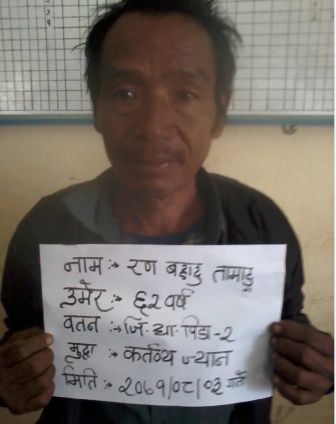 नाम :- रण बहादु तामाङ
उमेर :- ६२ वर्ष
वतन :- जि. झा. पिडा-२
मुद्दा :- कर्तव्य ज्यान
मिति :- २०७१/०८/०३ गते